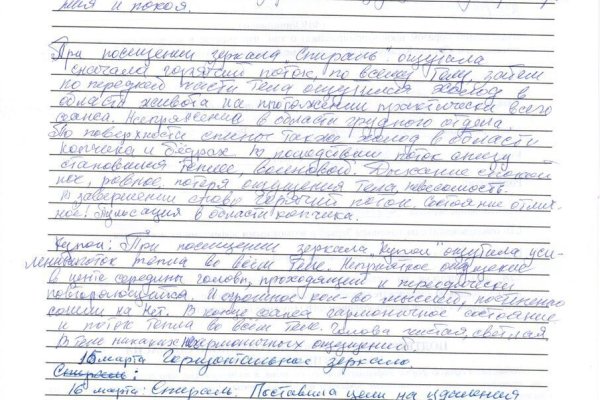 ния и покоя.
При посещении зеркала „Спираль" ощутила
сначала горячий поток, по всему телу, затем
по передней части тела ощущался холод в
области живота на протяжении практически всего
сеанса. Напряжение в области грудного отдела.
По поверхности спины также холод в области
копчика и бедрах. В последствии поток снизу
становился теплее, волновой. Дыхание спокой
ное, ровное, потеря ощущения тела, невесомость.
В завершении снова горячий поток. Состояние отлич-
ное. Пульсация в области копчика.
Купол: При посещении зеркала „Купол" ощутила уси-
ление поток тепла во всем теле. Неприятное ощущение
в центе середины головы, проходящий и переодически
повторяющийся. И огромное кол-во мыслей, постепенно
сошли на нет. В конце сеанса гармоничное состояние
и поток тепла во всем теле. Голова чистая, светлая
В теле никаких негармоничных ощущений.
15 марта Горизонтальное зеркало.
Спираль:
16 марта: Спираль. Поставила цели на